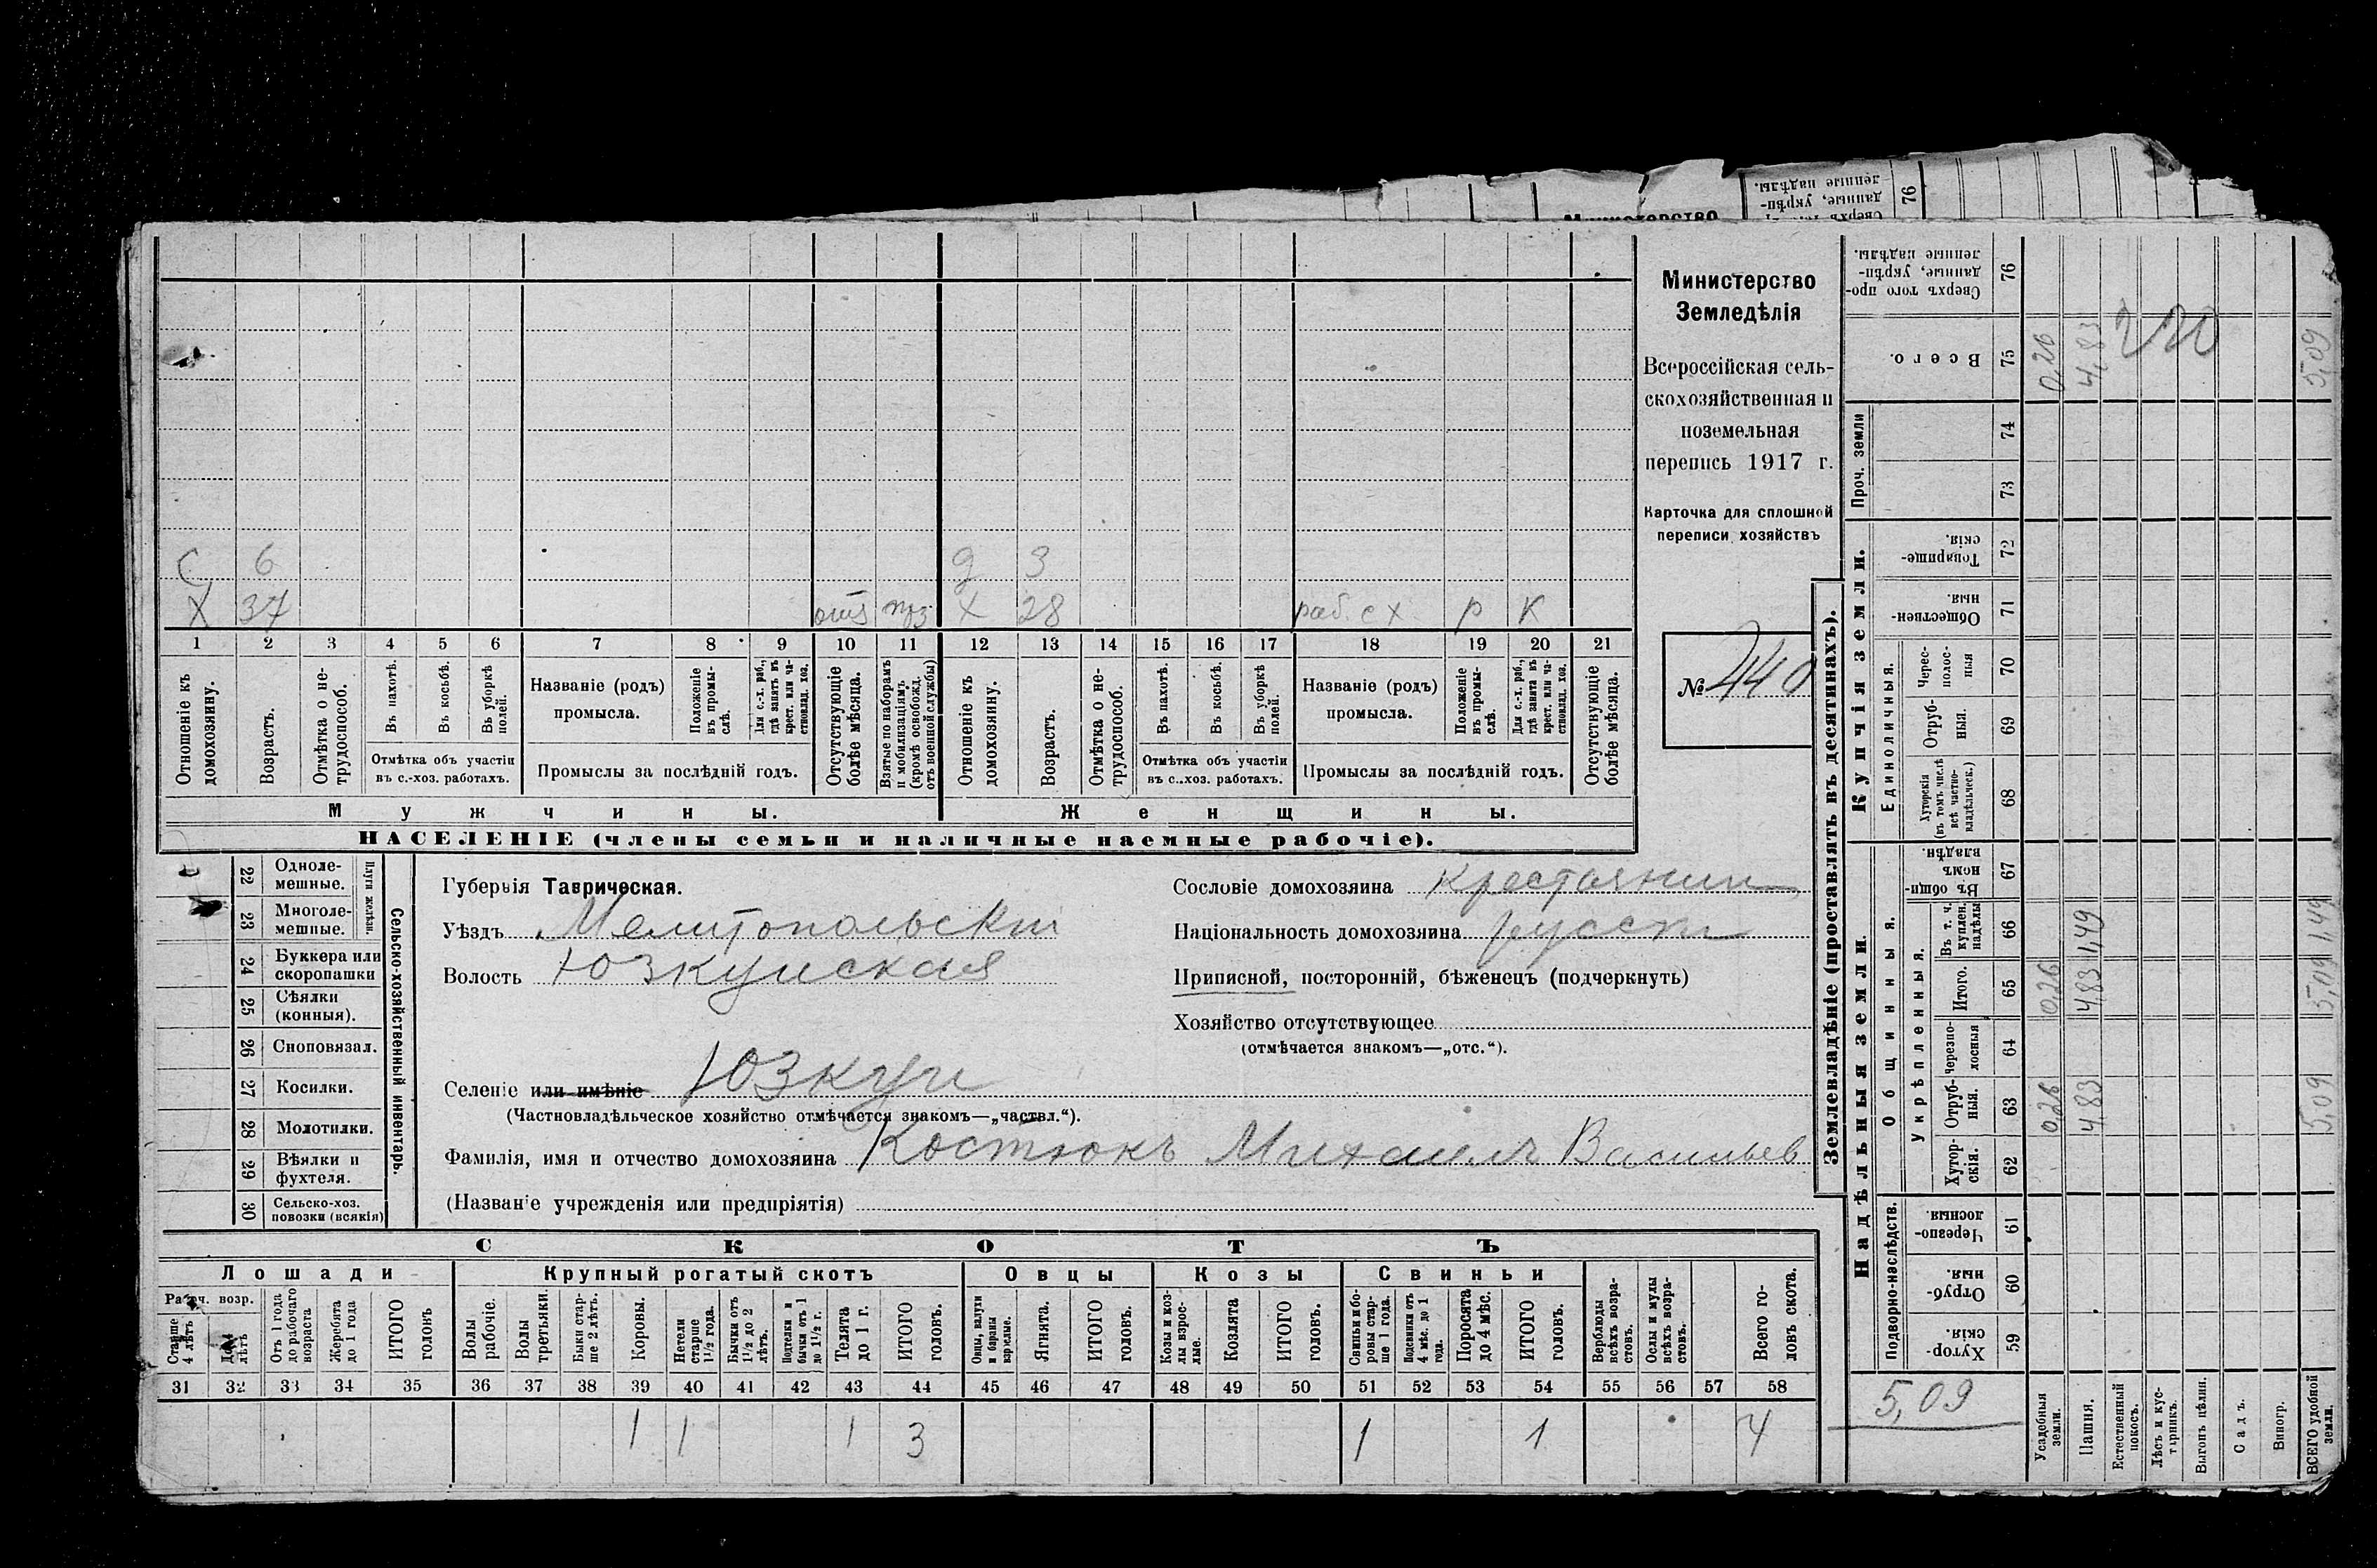 Министерство
Земледѣлія
Всероссійская сель-
скохозяйственная и
поземельная
перепись 1917 г.
Карточка для сплошной
переписи хозяйствъ
№ 440
С 6 д 3
Х 37 отс моб Х 28 раб. с х р К
1 2 3 4 5 6 7 8 9 10 11 12 13 14 15 16 17 18 19 20 21
Отношеніе къ домохозяину.
Возрастъ.
Отмѣтка о не-трудоспособ.
Въ пахотѣ.
Въ косьбѣ.
Въ уборкѣ полей.
Отмѣтка объ участіи
въ с.-хоз. работахъ.
Названіе (родъ)
промысла.
Положеніе въ промы-слѣ.
Для с.-х. раб., гдѣ занятъ въ крест. или ча-стновлад. хоз.
Промыслы за послѣдній годъ.
Отсутствующіе болѣе мѣсяца.
Взятые по наборамъ и мобилизаціямъ (кромѣ освобожд. отъ военной службы)
Отношеніе къ домохозяину.
Возрастъ.
Отмѣтка о не-трудоспособ.
Въ пахотѣ.
Въ косьбѣ.
Въ уборкѣ полей.
Отмѣтка объ участіи
въ с.-хоз. работахъ.
Названіе (родъ)
промысла.
Положеніе въ промы-слѣ.
Для с.-х. раб., гдѣ занята въ крест. или ча-стновлад. хоз.
Промыслы за послѣдній годъ.
Отсутствующіе болѣе мѣсяца.
Мужчины. Женщины.
НАСЕЛЕНІЕ (члены семьи и наличные наемные рабочіе).
22 Одноле-мешные.
23 Многоле-мешные.
Плуги желѣзн.
24 Буккера или скоропашки
25 Сѣялки (конныя).
26 Сноповязал.
27 Косилки.
28 Молотилки.
29 Вѣялки и фухтеля.
30 Сельско-хоз. повозки (всякія)
Сельско-хозяйственный инвентарь.
Губернія Таврическая.
Уѣздъ Мелитопольскій
Волость Юзкуйская
Селеніе или имѣніе Юзкуи
(Частновладѣльческое хозяйство отмѣчается знакомъ—„частвл.“).
Фамилія, имя и отчество домохозяина Костюкъ Михаилъ Васильев
(Названіе учрежденія или предпріятія)
Сословіе домохозяина крестьянин
Національность домохозяина русск
Приписной, посторонній, бѣженецъ (подчеркнуть)
Хозяйство отсутствующее
(отмѣчается знакомъ—„отс.“).
СКОТЪ
Лошади Крупный рогатый скотъ Овцы Козы Свиньи
Рабоч. возр.
Старше 4 лѣтъ
До 4 лѣтъ
Отъ 1 года до рабочаго возраста
Жеребята до 1 года
ИТОГО головъ
Волы рабочіе.
Волы третьяки.
Быки стар-ше 2 лѣтъ.
Коровы.
Нетели старше 1½ года.
Бычки отъ 1½ до 2 лѣтъ.
Подтелки и бычки отъ 1 до 1½ г.
Телята до 1 г.
ИТОГО головъ.
Овцы, валухи и бараны взрослые.
Ягнята.
ИТОГО головъ.
Козы и коз-лы взрос-лые.
Козлята
ИТОГО головъ.
Свиньи и бо-ровы стар-ше 1 года.
Подсвинки отъ 4 мѣс. до 1 года.
Поросята до 4 мѣс.
ИТОГО головъ.
Верблюды всѣхъ возра-стовъ.
Ослы и мулы всѣхъ возра-стовъ.
Всего го-ловъ скота.
31 32 33 34 35 36 37 38 39 40 41 42 43 44 45 46 47 48 49 50 51 52 53 54 55 56 57 58
1 1 1 3 1 1 4
Землевладѣніе (проставлять въ десятинахъ).
Купчія земли.
Надѣльныя земли.
Сверхъ того про-данные, укрѣп-ленные надѣлы. 76
Всего. 75 0,26 4,83 5,09
Проч. земли 74 73
Товарище-скія. 72
Обществен-ныя. 71
Единоличныя.
Черес-полос-ныя 70
Отруб-ныя. 69
Хуторскія (въ томъ числѣ всѣ частно-владѣльческ.) 68
Общинныя.
Въ общин-номъ владѣн. 67
Укрѣпленныя.
Въ т. ч. куплен. надѣлы 66 1,49 1,49
Итого. 65 0,26 4,83 5,09
черезпо-лосныя 64
Отруб-ныя. 63 0,26 4,83 5,09
Хутор-скія. 62
Подворно-наслѣдств.
Черезпо-лосныя. 61
Отруб-ныя. 60
Хутор-скія. 59
5,09
Усадебныя земли.
Пашня.
Естественный покосъ.
Лѣсъ и кус-тарникъ.
Выгонъ цѣлин.
Садъ.
Виногр.
ВСЕГО удобной земли.